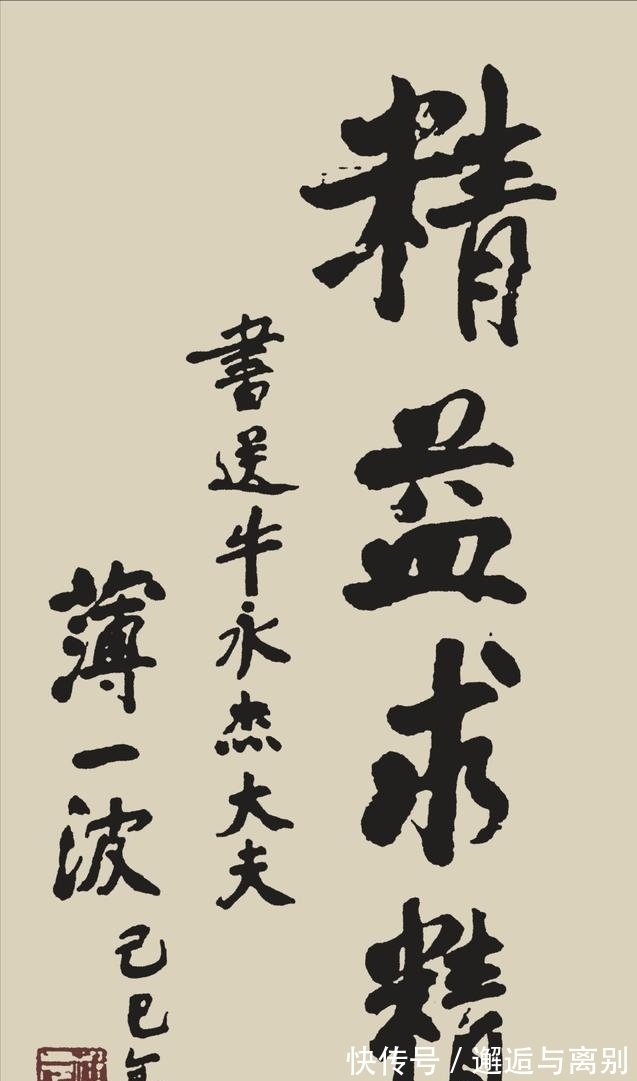 精益求精
书送牛永杰大夫
薄一波
己巳年
快传号/邂逅与离别